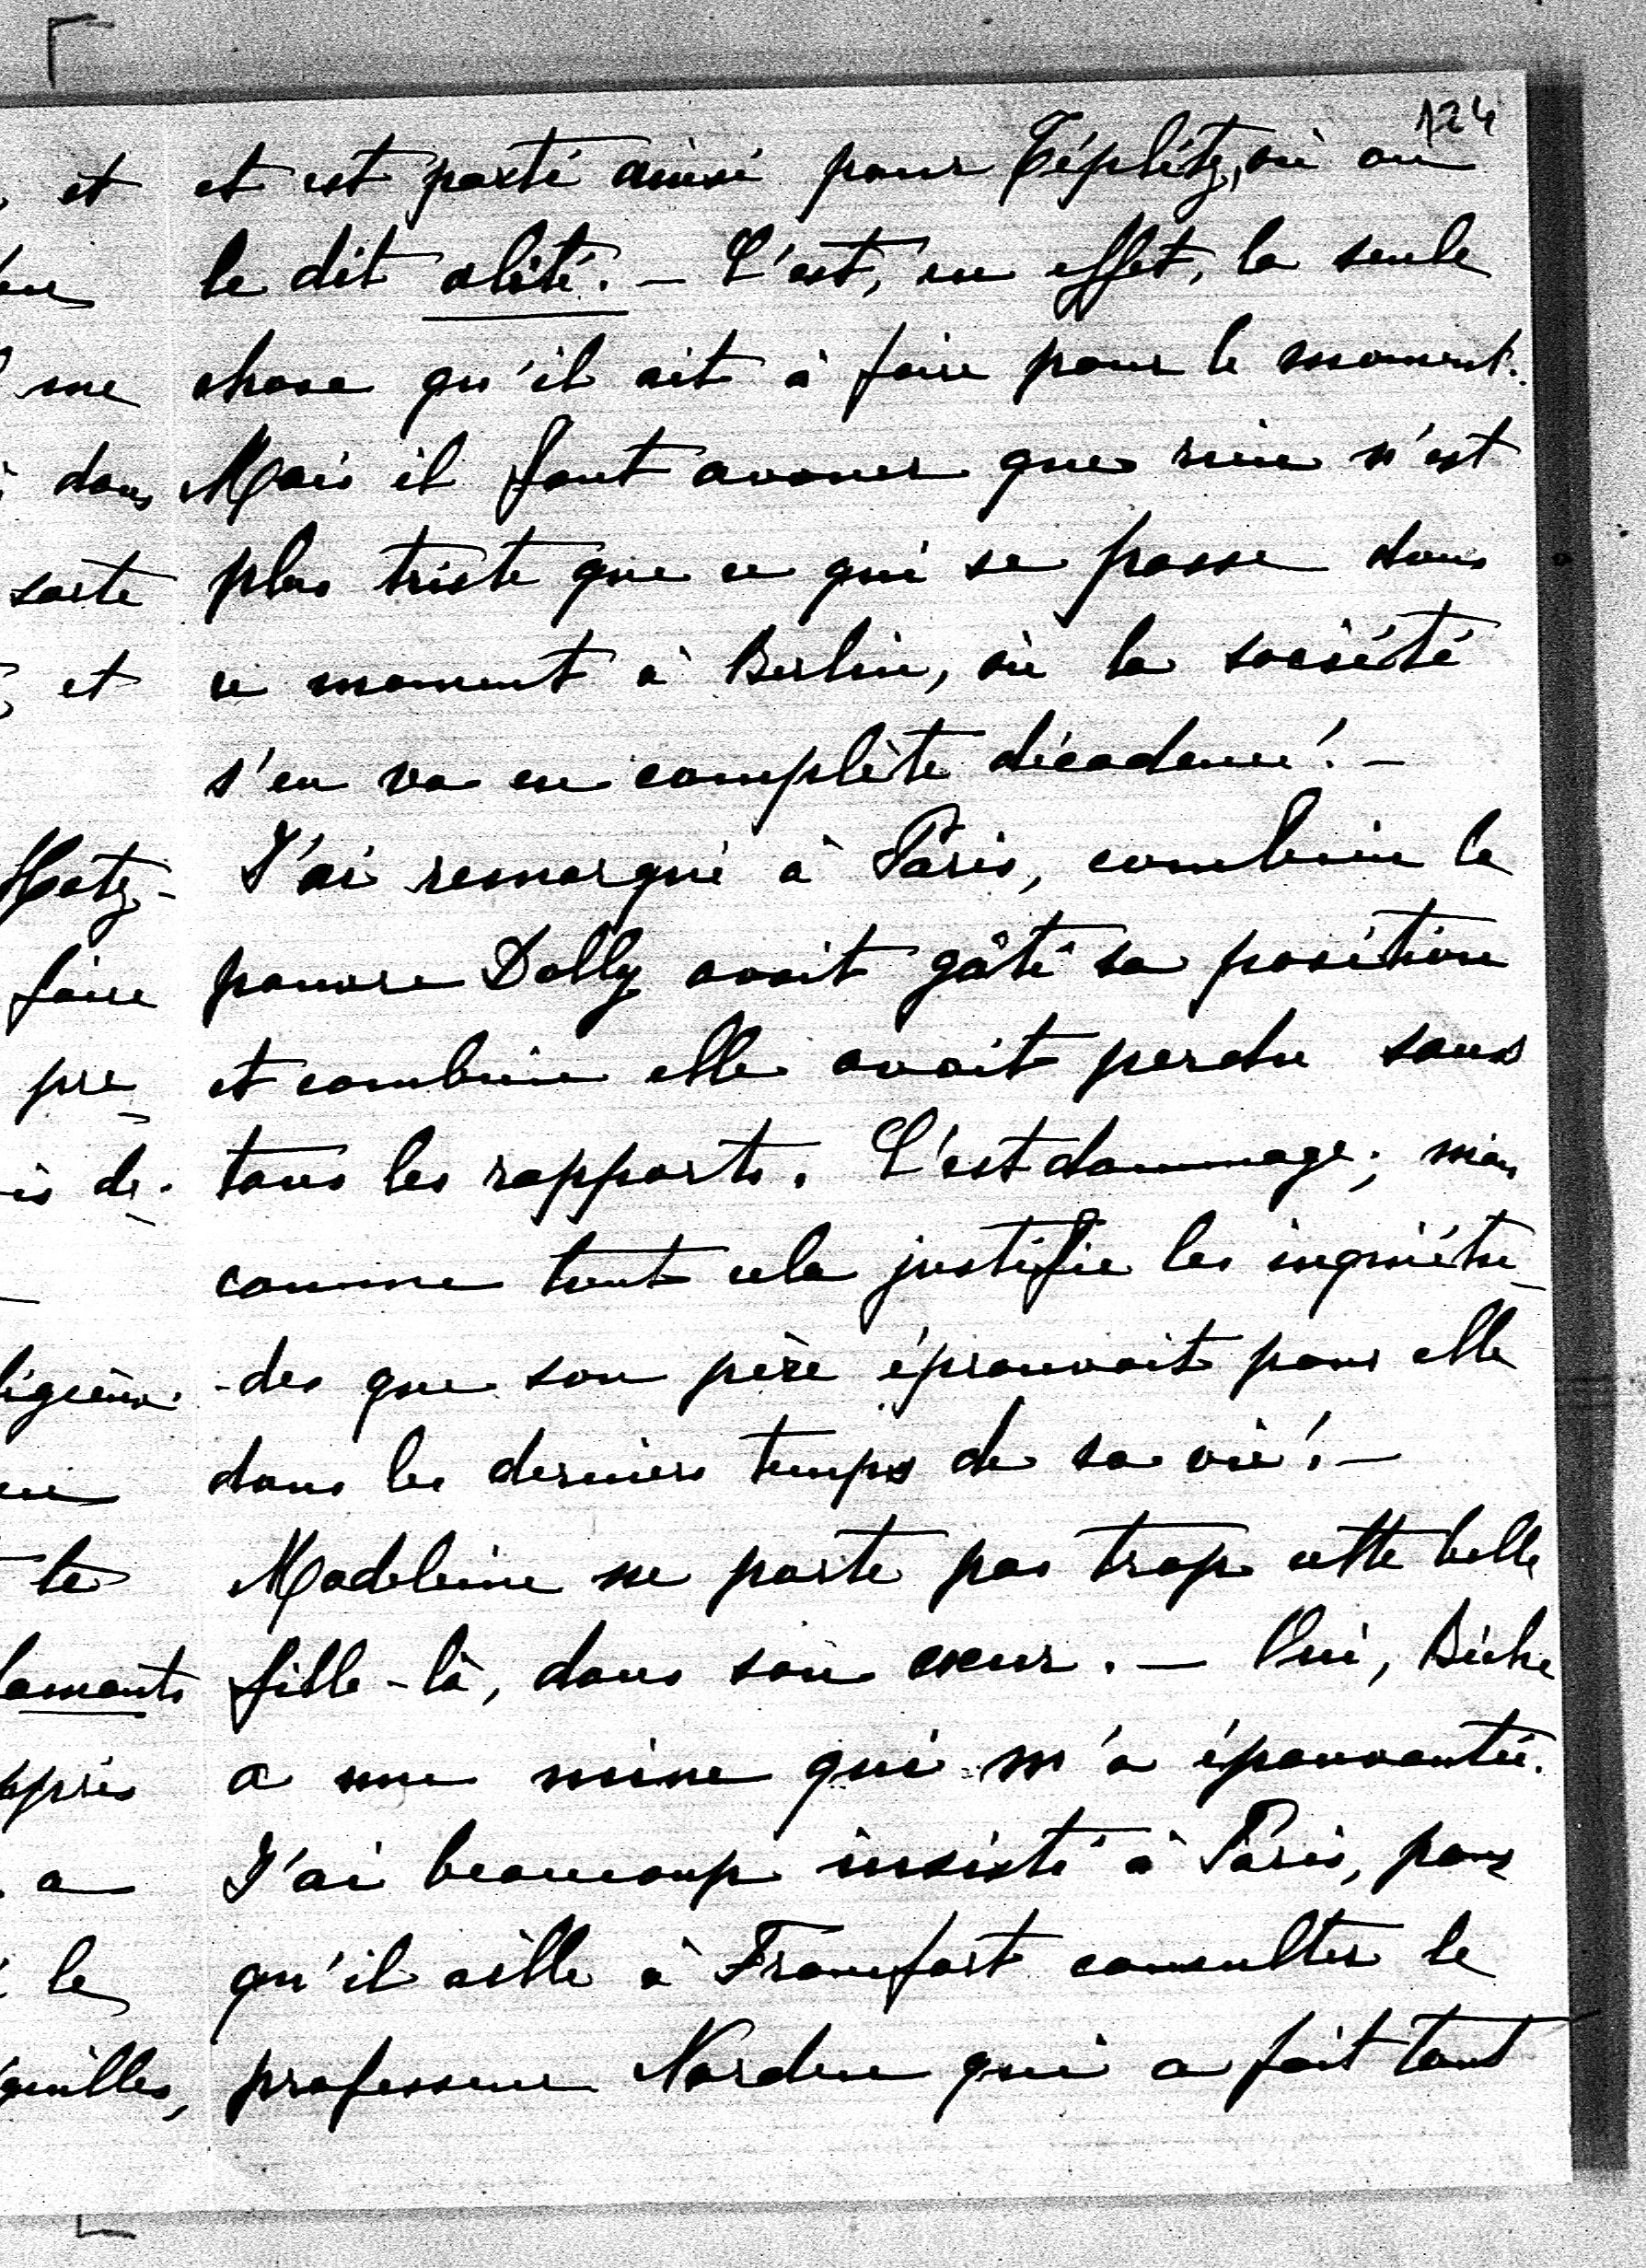 124
et est parti ainsi pour Téplitz, où on
le dit alité. – C'est, en effet, la seule
chose qu'il ait à faire pour le moment.
Mais il faut avouer que rien n'est
plus triste que ce qui se passe dans
ce moment à Berlin, où la société
s'en va en complète décadence! –
J'ai remarqué à Paris, combien la
pauvre Dolly avait gâté sa position
et combien elle avait perdu sous
tous les rapports. C'est dommage; mais
comme tout cela justifie les inquiétu-
-des que son père éprouvait pour elle
dans les derniers temps de sa vie! –
Madeleine ne porte pas trop cette belle
fille-là, dans son cœur. – Oui, Biche
a une mine qui m'a épouvantée.
J'ai beaucoup insisté à Paris, pour
qu'il aille à Francfort consulter le
professeur Norden qui a fait tant
et
me
dans
sorte
et
Metz-
faire
pre-
le
après
a
le